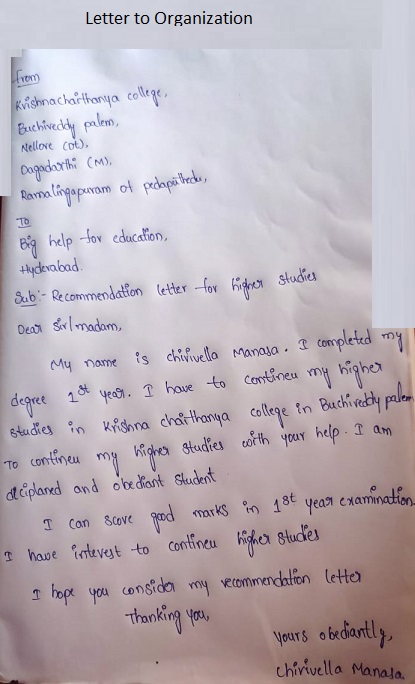 Letter to Organization
From
Krishnachaithanya college,
Buchireddy palem,
Nellore (Dt),
Dagadarthi (M),
Ramalingapuram of pedapathedu,
To
Big help for education,
Hyderabad.
Sub:- Recommendation letter for higher studies
Dear Sir/madam,
My name is chirivella Manasa. I completed my
degree 1st year. I have to contineu my higher
studies in Krishna chaithanya college in Buchireddy palem
To contineu my higher studies with your help. I am
deciplaned and obediant student
I can score good marks in 1st year examination.
I have interest to contineu higher studies
I hope you consider my recommendation letter
Thanking you,
yours obediantly,
Chirivella Manasa.